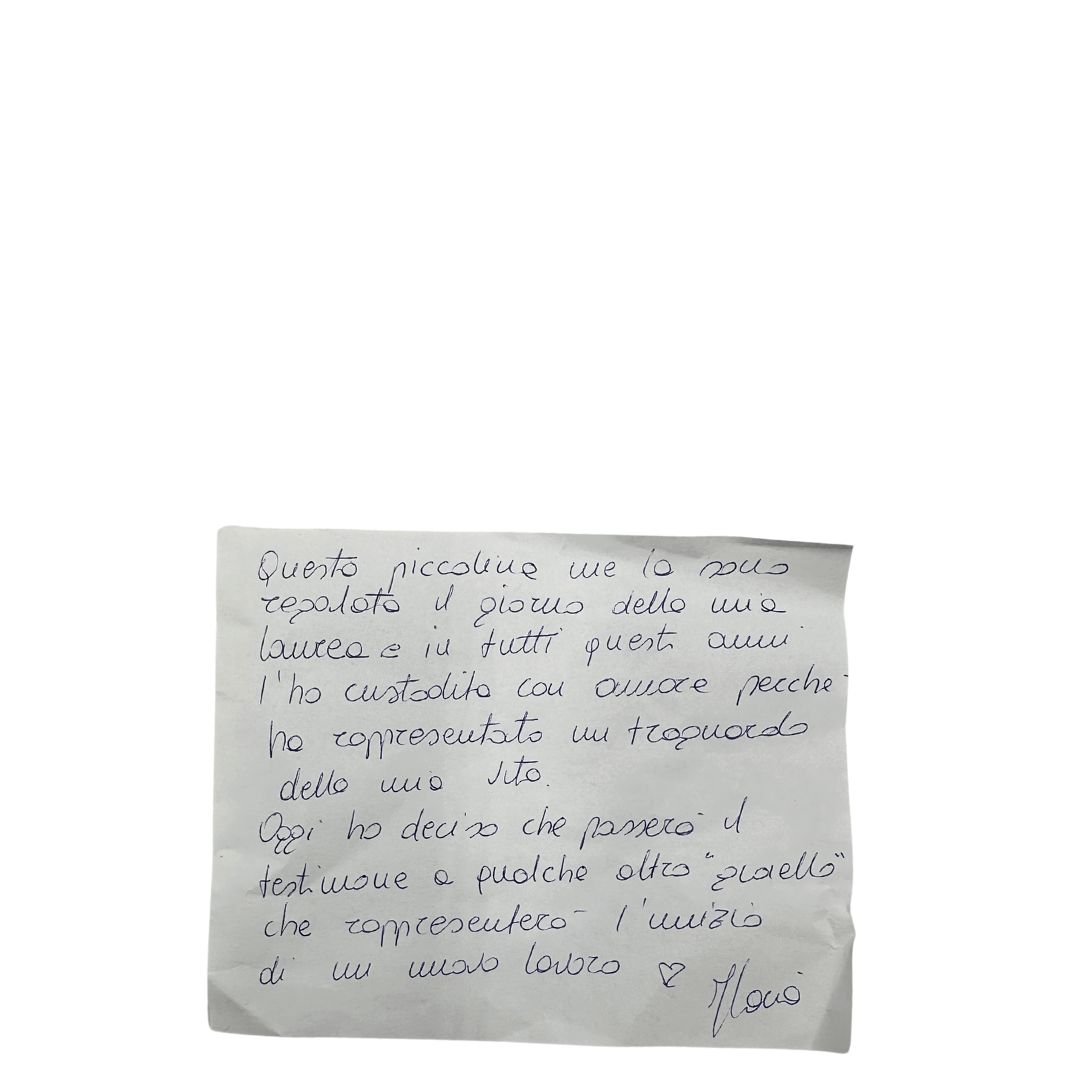 Questo piccolino me lo sono
regalato il giorno della mia
laurea e in tutti questi anni
l'ho custodito con amore perche'
ha rappresentato un traguardo
della mia vita.
Oggi ho deciso che passerò il
testimone a qualche altro "gioiello"
che rappresenterà l'inizio
di un nuovo lavoro ♡